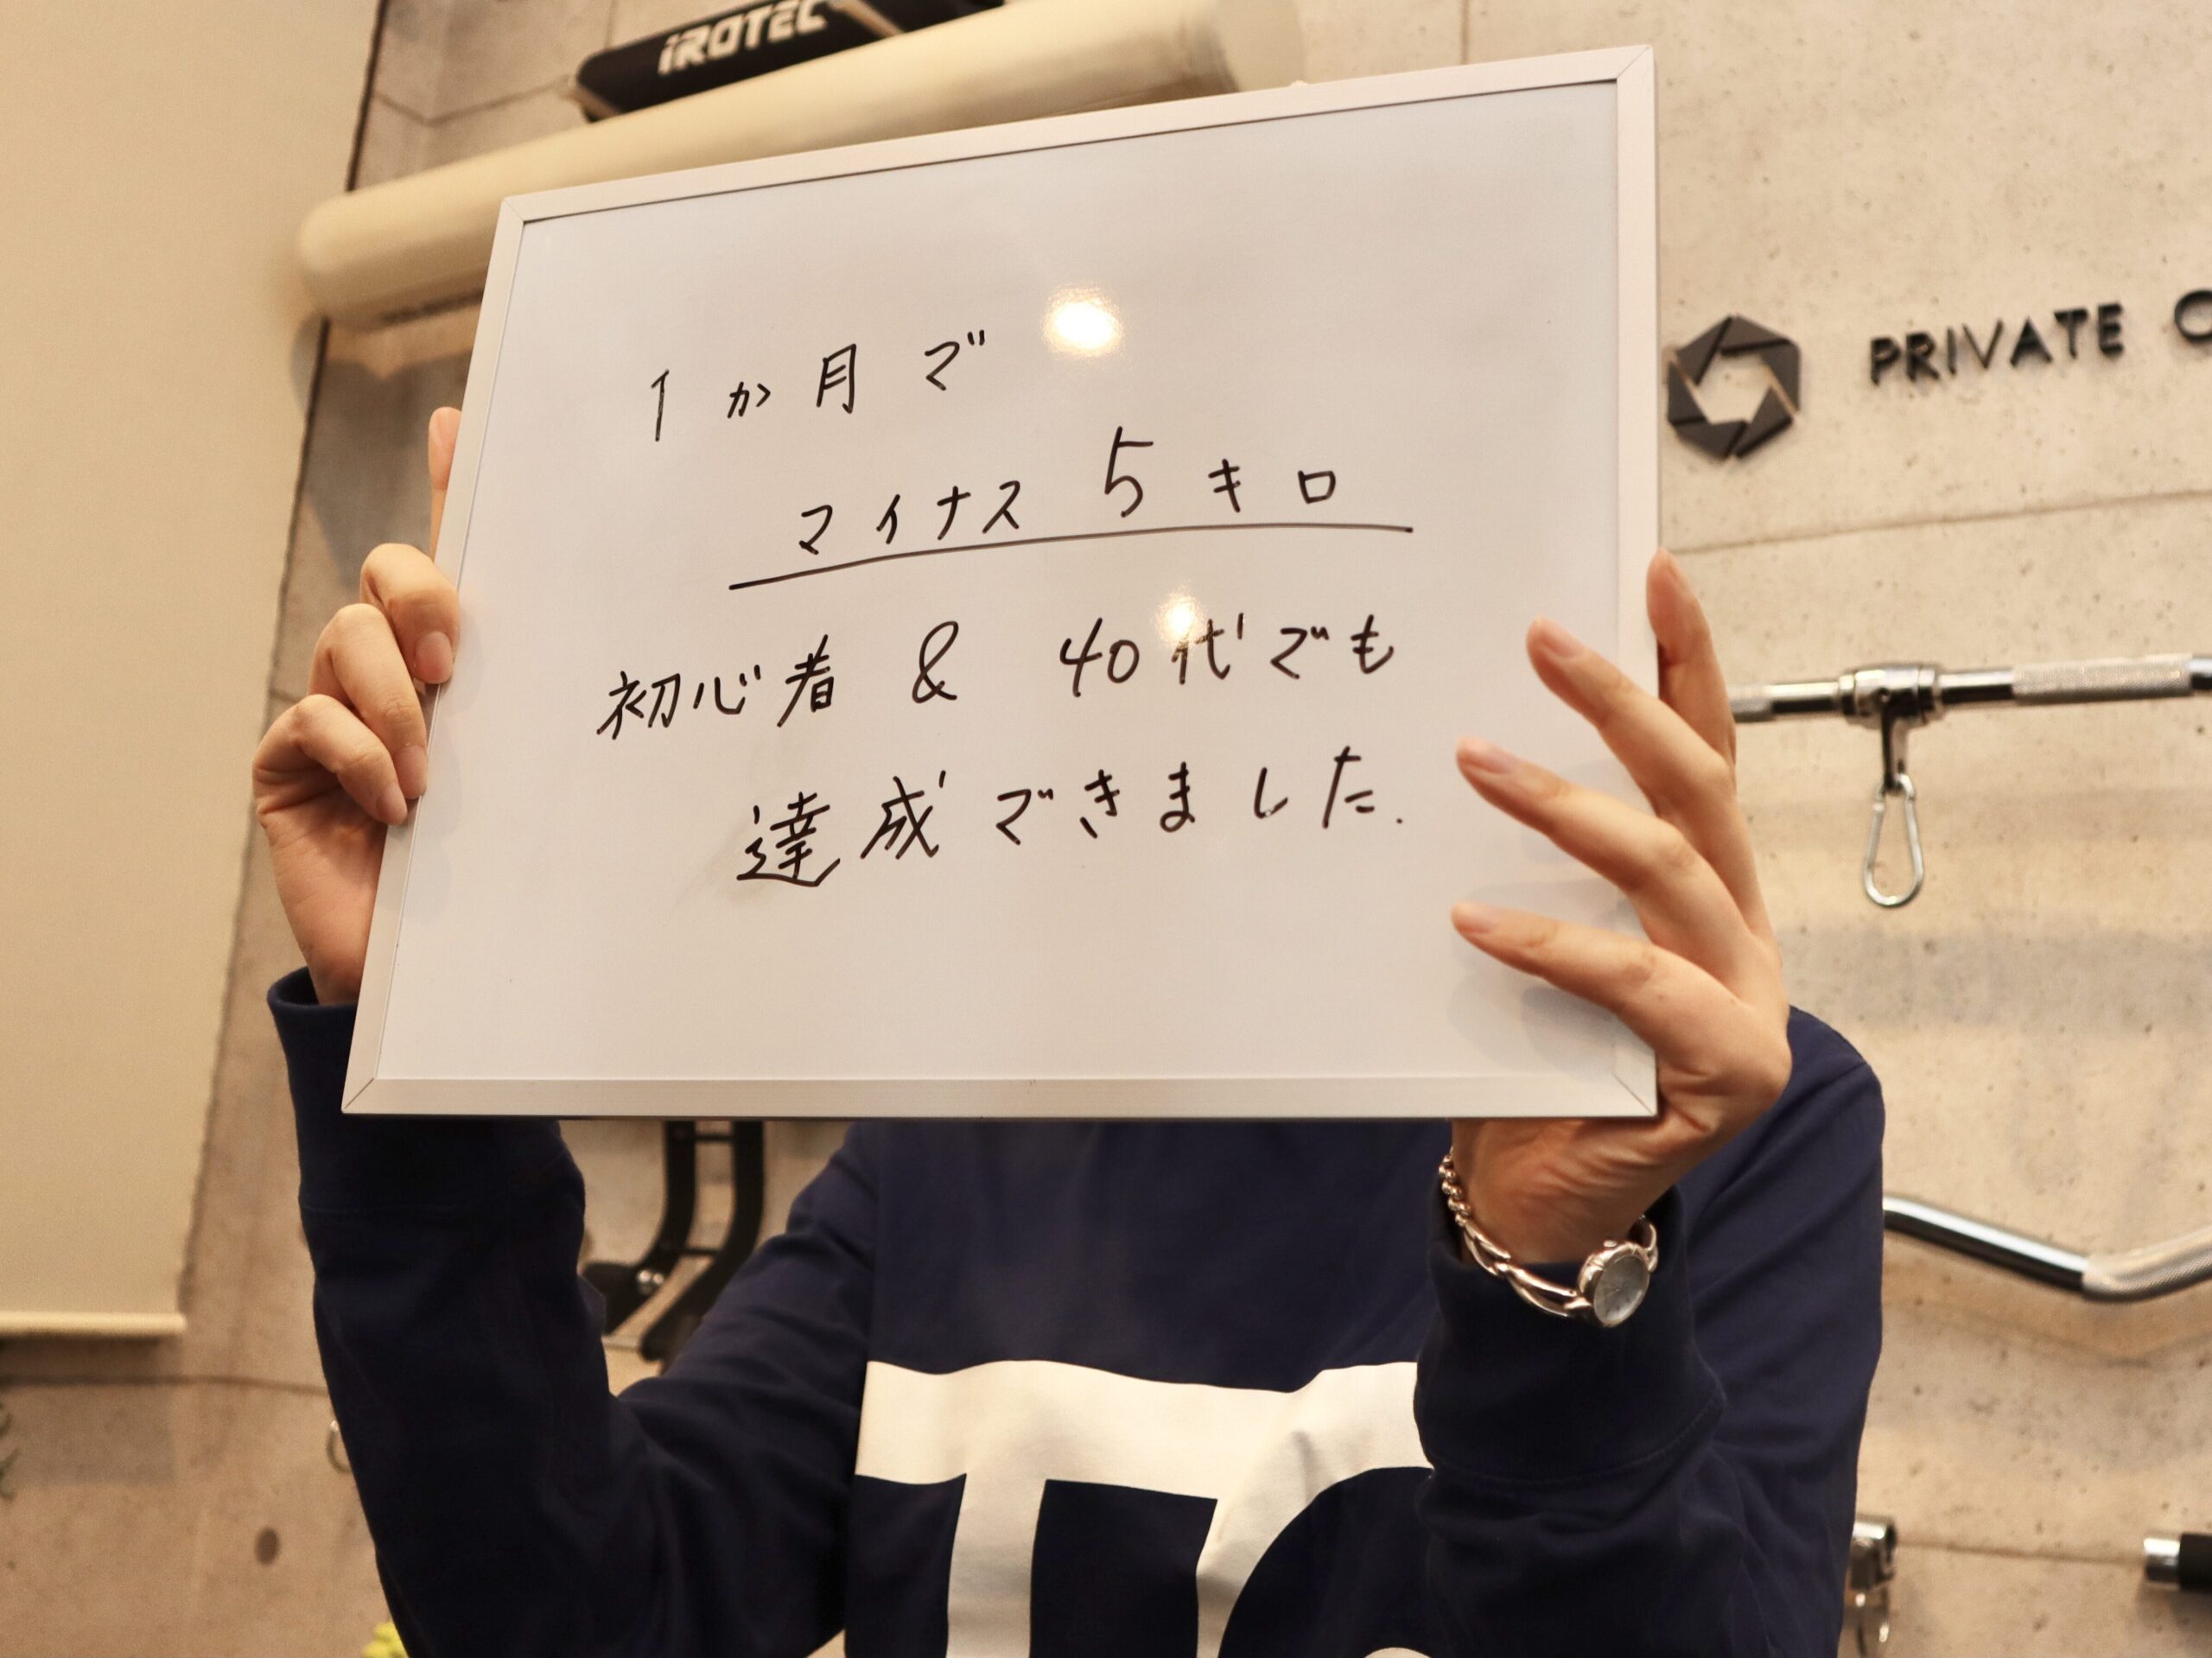 iROTEC
1か月で
マイナス5キロ
初心者 & 40代でも
達成できました.
PRIVATE